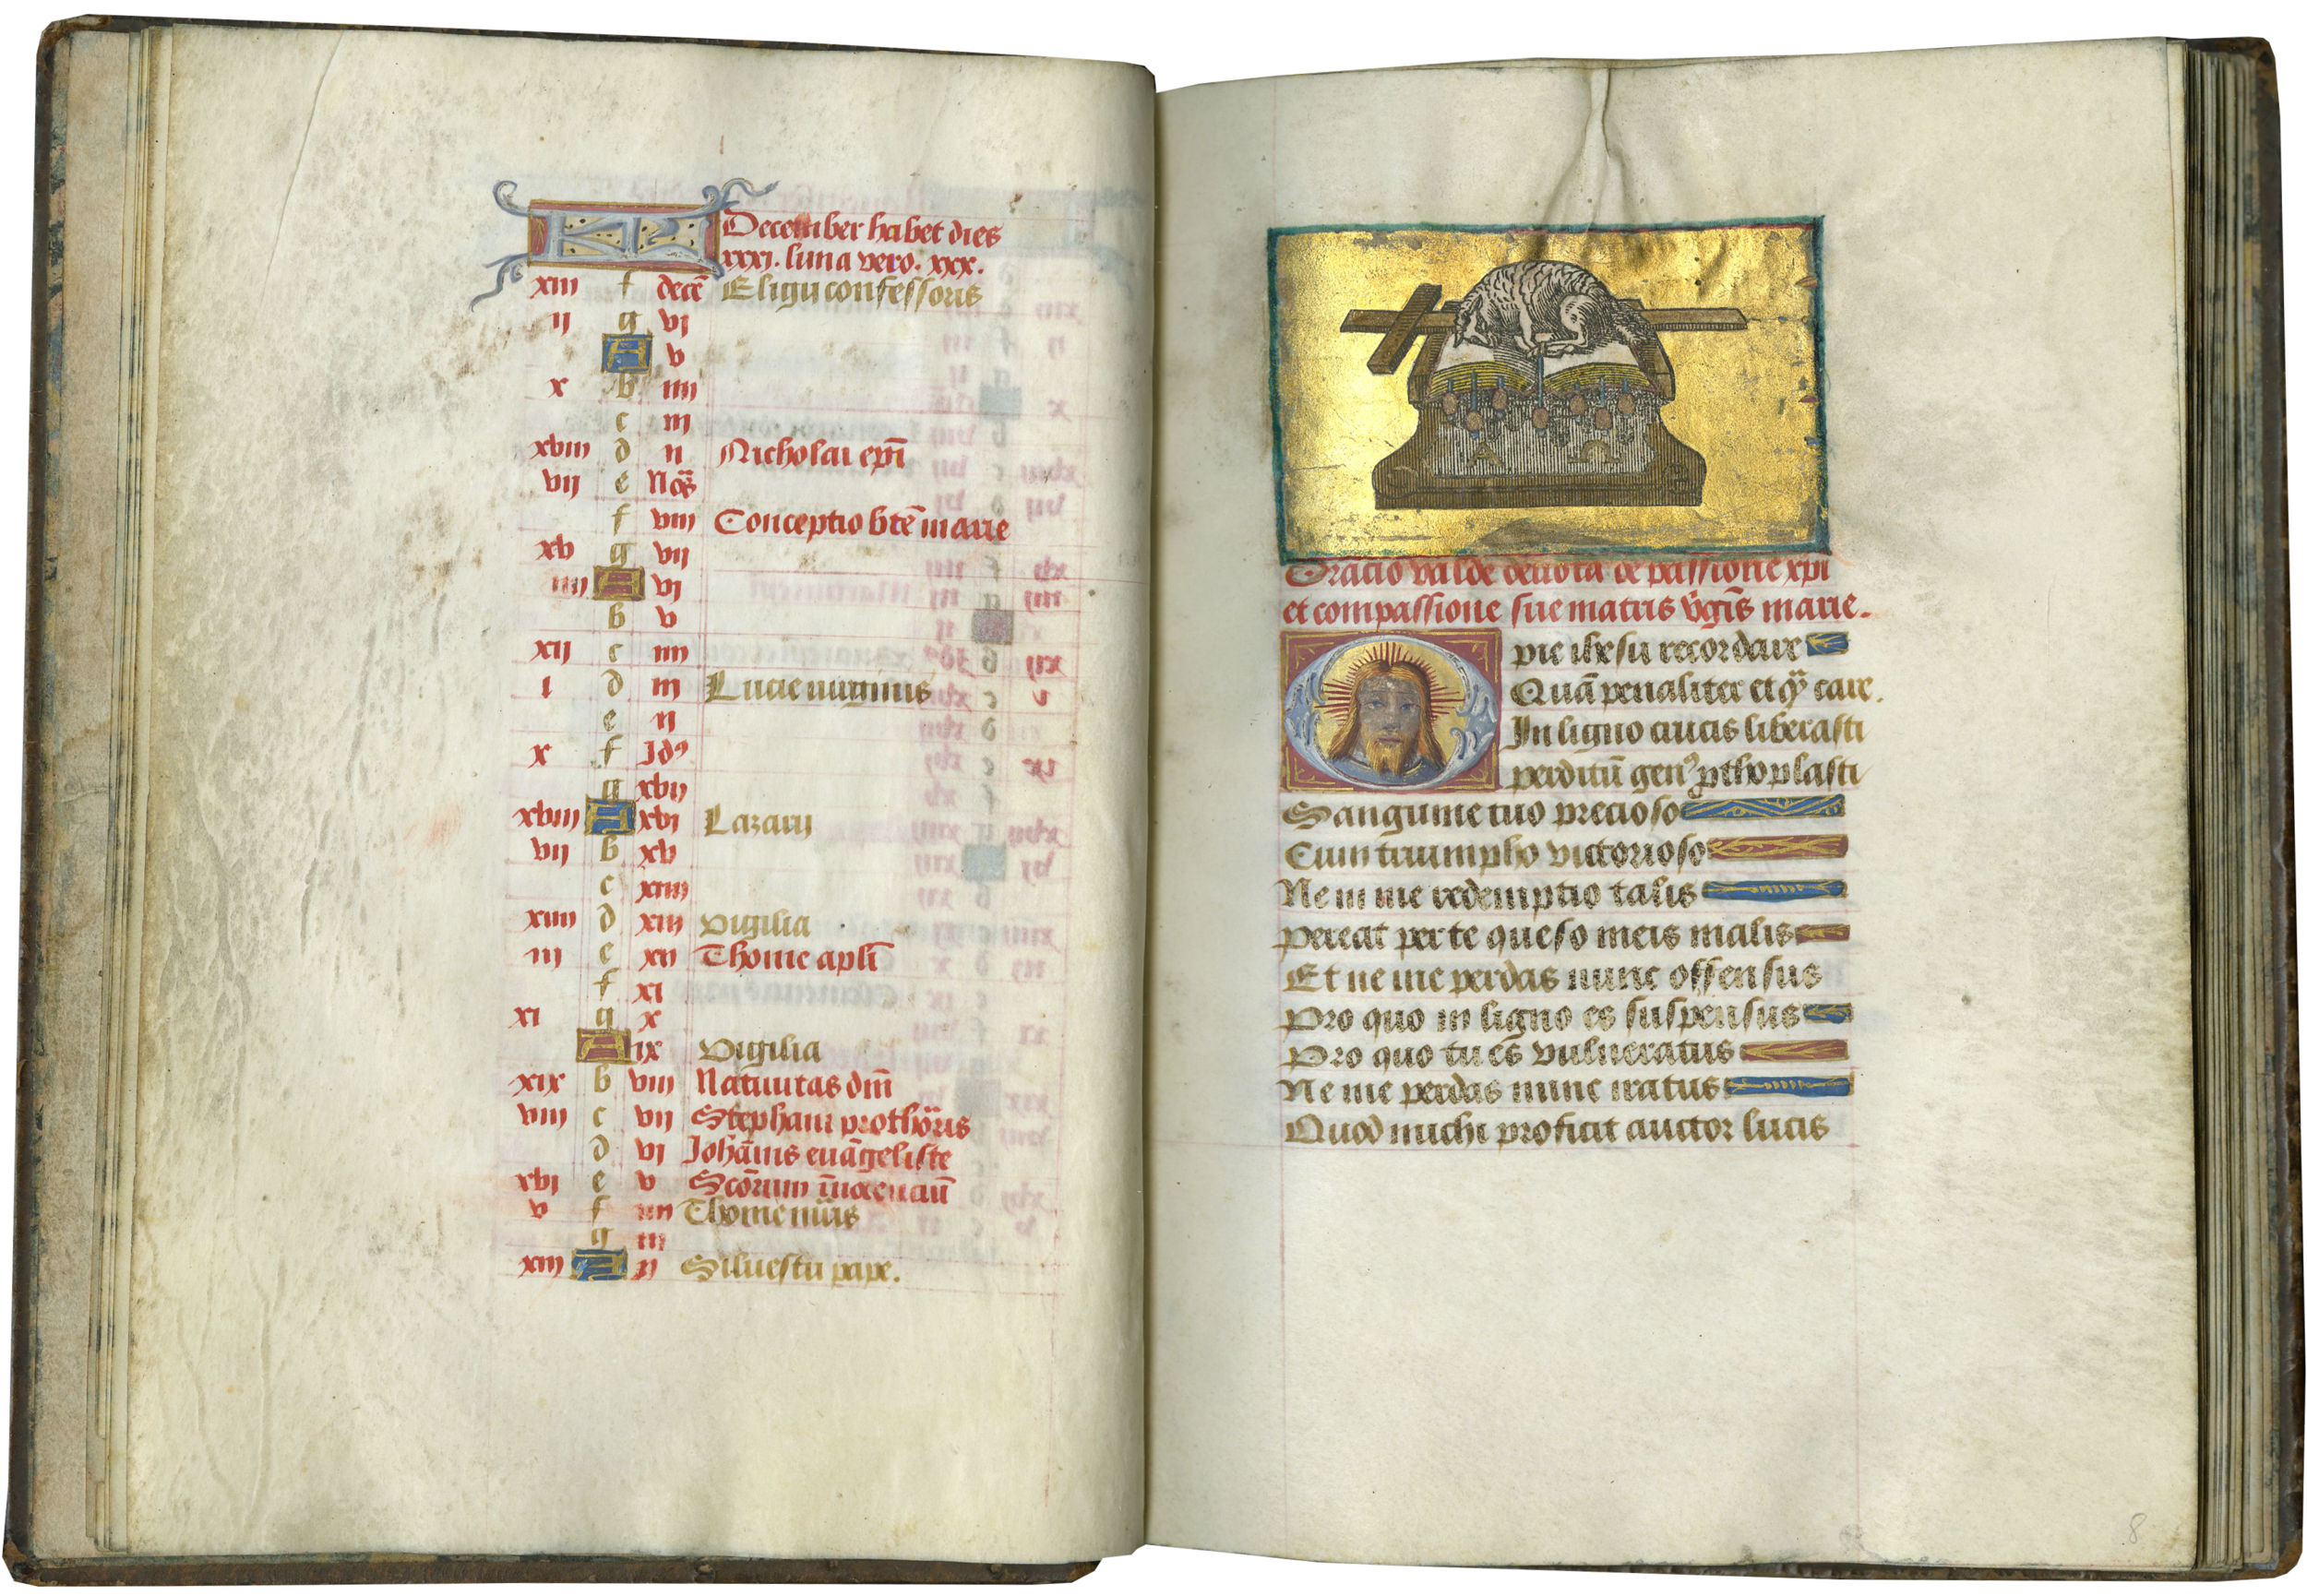 KL December habet dies
xxxj. luna vero. xxx.
xiij f decē Eligij confessoris
ij g vj
A v
x b iiij
c iij
xviij d ij Nicholai epī
vij e Noꝰ
f viij Conceptio btē marie
xv g vij
iiij A vj
b v
xij c iiij
i d iij Lucie virginis
e ij
x f Idꝰ
g xvij
xviij A xvj Lazarij
vij b xv
c xiiij
xiiij d xiij vigilia
iij e xij Thome aplī
f xj
xj g x
A ix vigilia
xix b viij Natiuitas dm̄
viij c vij Stephani prothom̄ris
d vj Johānis euāgeliste
xvj e v Scōrum īnocenciū
v f iiij Thome mr̄is
g iij
xiij A ij Siluestri pape.
Oracio valde deuota de passione xpi
et compassione sue matris v̄gīs marie.
O pie ihesu recordare
Quā penaliter et qͣ care.
In ligno crucis liberasti
perditū genꝰ ꝓthoplasti
Sanguine tuo precioso
Cum triumpho victorioso
Ne in me redemptio talis
pereat per te queso meis malis
Et ne me perdas nunc offensus
Pro quo in ligno es suspensus
Pro quo tu es vulneratus
Ne me perdas nunc iratus
Quod michi proficit auctor lucis
8